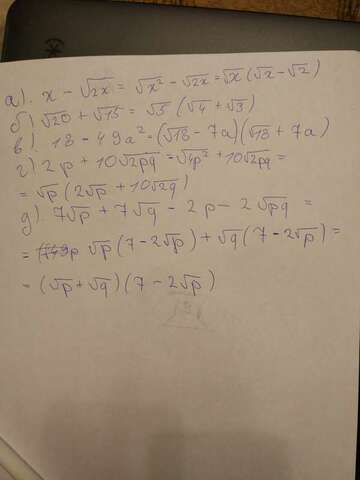 а). x - √2x = √x² - √2x = √x (√x - √2)
б) √20 + √15 = √5 (√4 + √3)
в). 18 - 49a² = (√18 - 7a)(√18 + 7a)
г). 2p + 10√2pq = √4p² + 10√2pq =
= √p (2√p + 10√2q)
д). 7√p + 7√q - 2p - 2√pq =
= √p (7 - 2√p) + √q (7 - 2√p) =
= (√p + √q)(7 - 2√p)